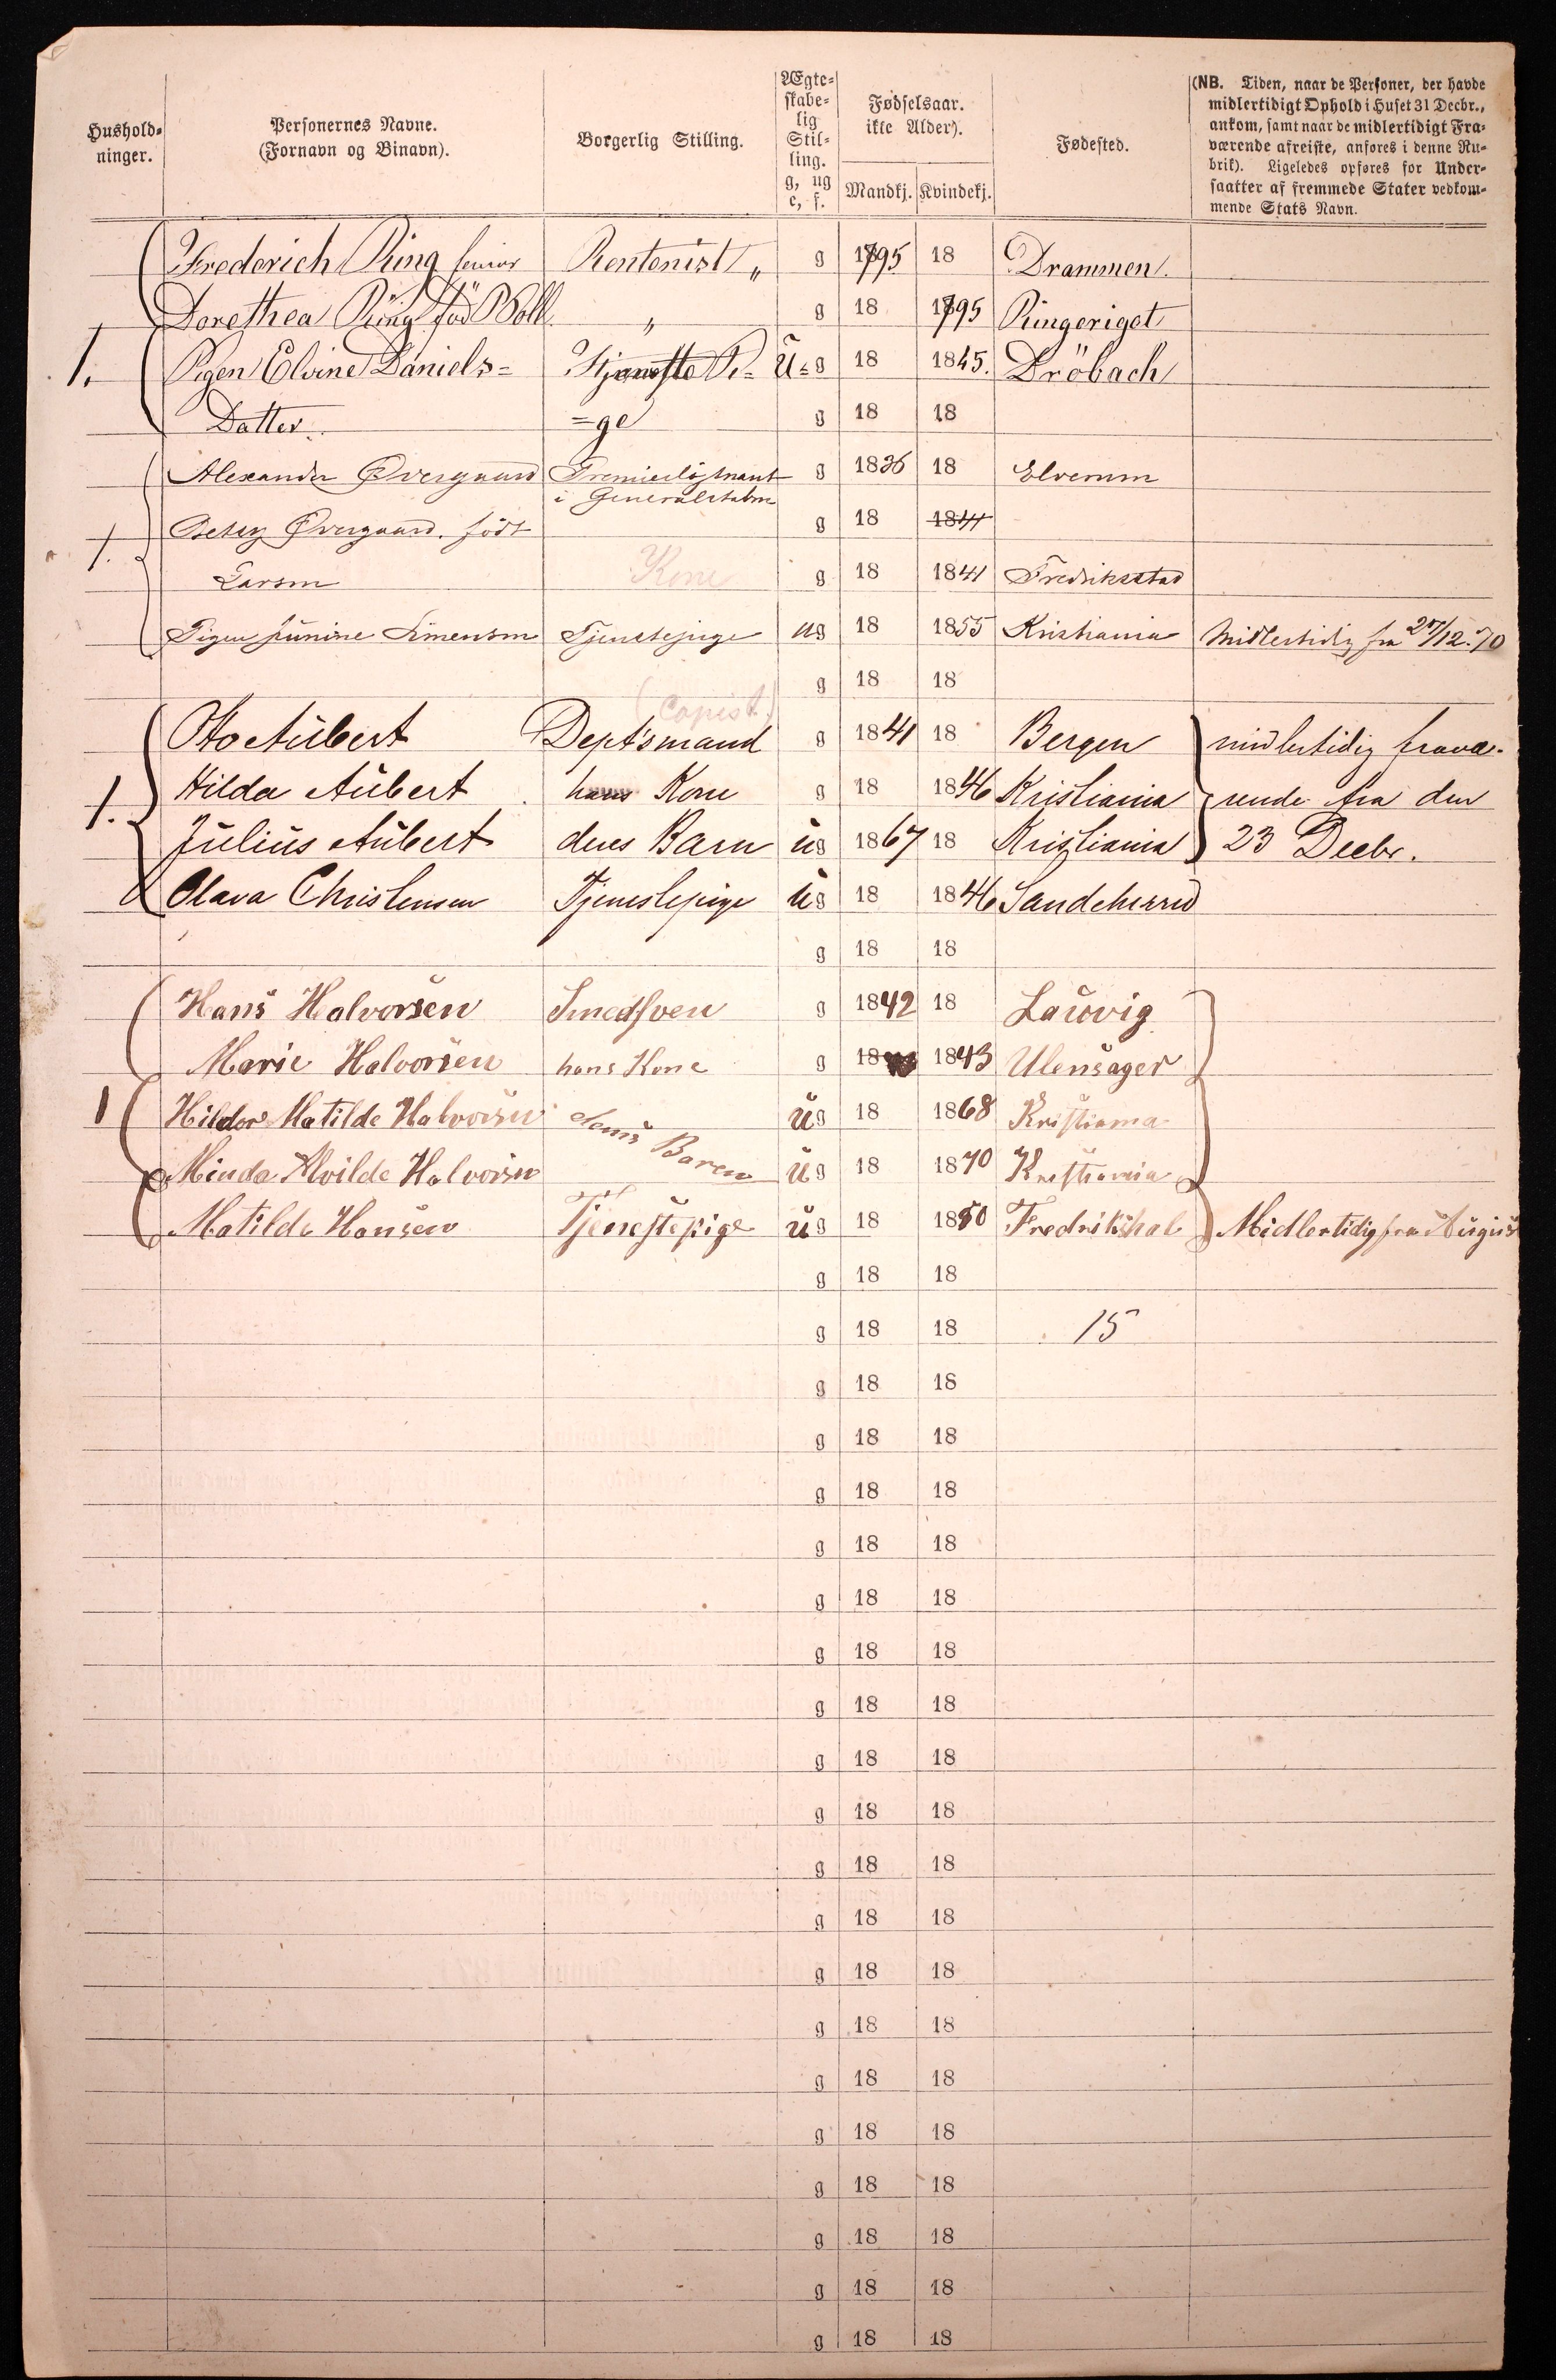 Hushold-
ninger.
Personernes Navne.
(Fornavn og Binavn).
Borgerlig Stilling.
Ægte-
skabe-
lig
Stil-
ling.
g, ug
e, f.
Fødselsaar.
ikke Alder).
Mandkj. Kvindekj.
Fødested.
(NB. Tiden, naar de Personer, der havde
midlertidigt Ophold i Huset 31 Decbr.,
ankom, samt naar de midlertidigt Fra-
værende afreiste, anføres i denne Ru-
brik). Ligeledes opføres for Under-
saatter af fremmede Stater vedkom-
mende Stats Navn.
Frederich Ring senior Rentenist „ g 1795 18 Drammen.
Dorethea Ring föd „ g 18 1795 Ringeriget
1. Pigen Elvine Daniels= Tjeneste Pi= u=g 18 1845. Dröbach
Datter. =ge g 18 18
Alexander Øvergaard Premierløjtnant g 1836 18 Elverum
i Generalstaben
Betzy Øvergaard. født g 18 1841
1. Larsen Kone g 18 1841 Fredriksstad
Pigen Junine Simensen Tjenestepige ug 18 1855 Kristiania Midlertidig fra 27/12.70
g 18 18
(Copist.)
Otto Aubert Dept'smand g 1841 18 Bergen midlertidig fravæ-
1. Hilda Aubert hans Kone g 18 1846 Kristiania rende fra den
Julius Aubert deres Barn ug 1867 18 Kristiania 23 Decbr.
Olava Christensen Tjenestepige ug 18 1846 Sandeherred
g 18 18
Hans Halvorsen Smedsven g 1842 18 Laurvig
Marie Halvorsen hans Kone g 18 1843 Ulensager
1 Hilda Matilde Halvorsen deris Baren ug 18 1868 Kristiania
Minda Alvilde Halvorsen ug 18 1870 Kristiania
Matilde Hansen Tjenestepige ug 18 1850 Fredrikshal Midlertidig fra August
g 18 18
g 18 18 15
g 18 18
g 18 18
g 18 18
g 18 18
g 18 18
g 18 18
g 18 18
g 18 18
g 18 18
g 18 18
g 18 18
g 18 18
g 18 18
g 18 18
g 18 18
g 18 18
g 18 18
g 18 18
g 18 18